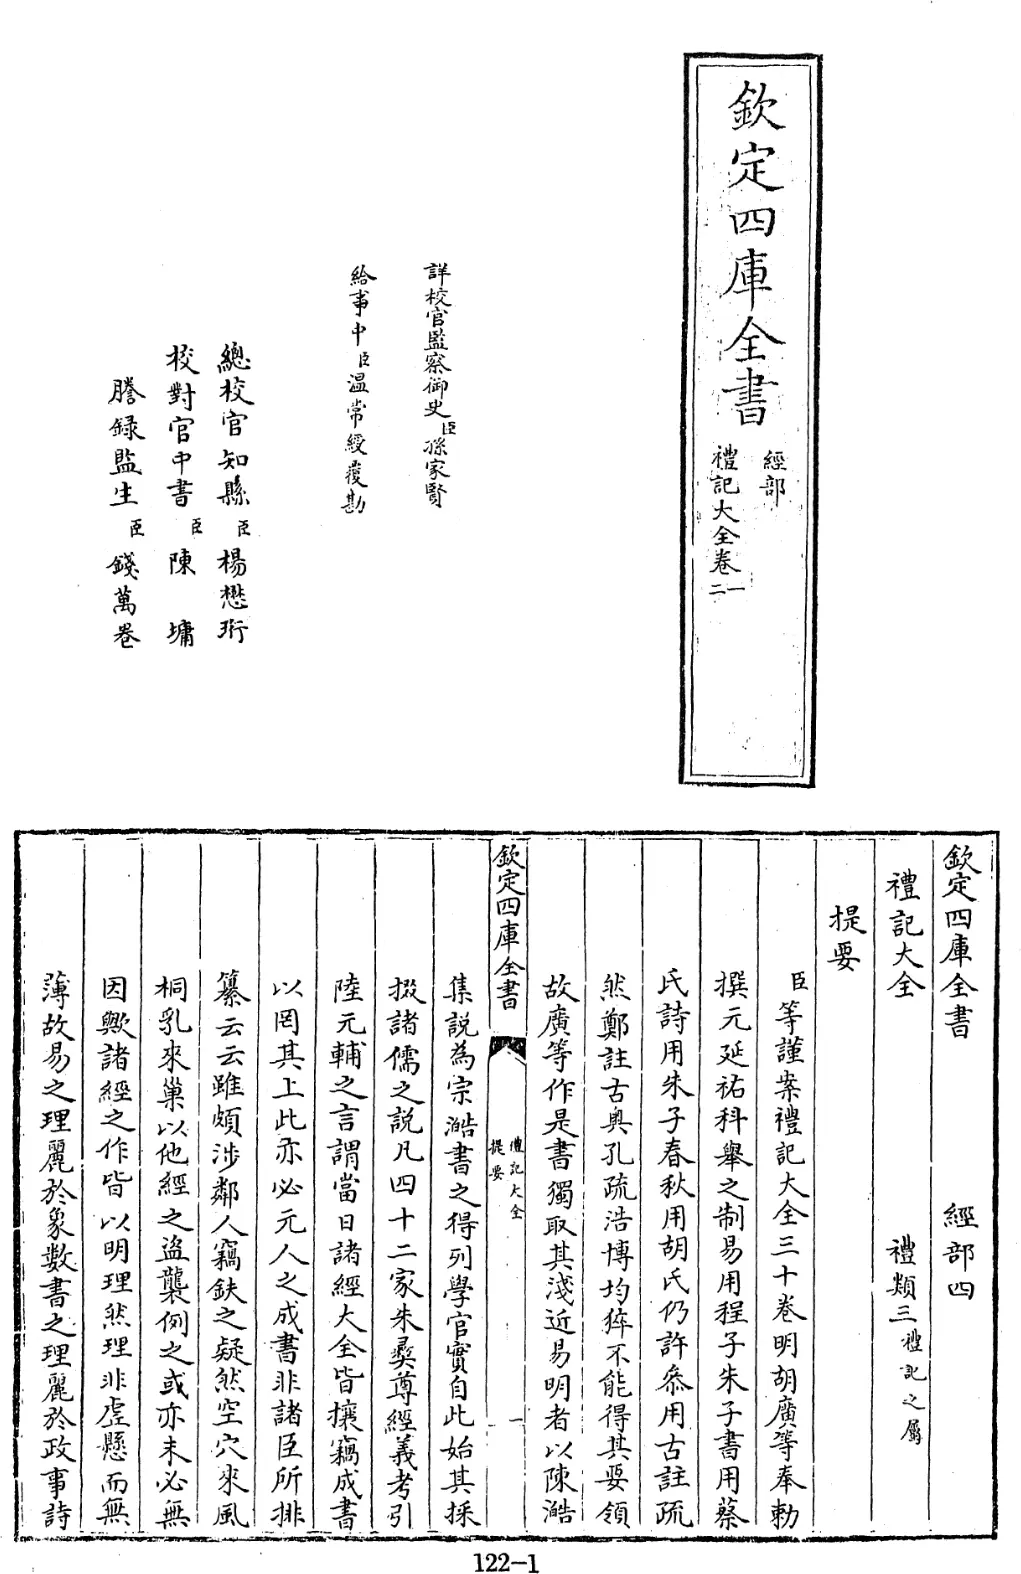 欽定四庫全書
經部
禮記大全卷一
二
詳校官監察御史臣孫家賢
給事中臣溫常綬覆勘
總校官知縣臣楊懋珩
校對官中書臣陳墉
謄錄監生臣錢萬卷
欽定四庫全書 經部四
禮記大全 禮類三禮記之屬
提要
臣等謹案禮記大全三十卷明胡廣等奉勅
撰元延祐科舉之制易用程子朱子書用蔡
氏詩用朱子春秋用胡氏仍許參用古註疏
然鄭註古奧孔疏浩博均猝不能得其要領
故廣等作是書獨取其淺近易明者以陳澔
欽定四庫全書 禮記大全 提要 一
集說為宗澔書之得列學官實自此始其採
掇諸儒之說凡四十二家朱彝尊經義考引
陸元輔之言謂當日諸經大全皆攘竊成書
以罔其上此亦必元人之成書非諸臣所排
纂云云雖頗涉鄰人竊鈇之疑然空穴來風
桐乳來巢以他經之盜襲例之或亦未必無
因歟諸經之作皆以明理然理非虛懸而無
薄故易之理麗於象數書之理麗於政事詩
122-1